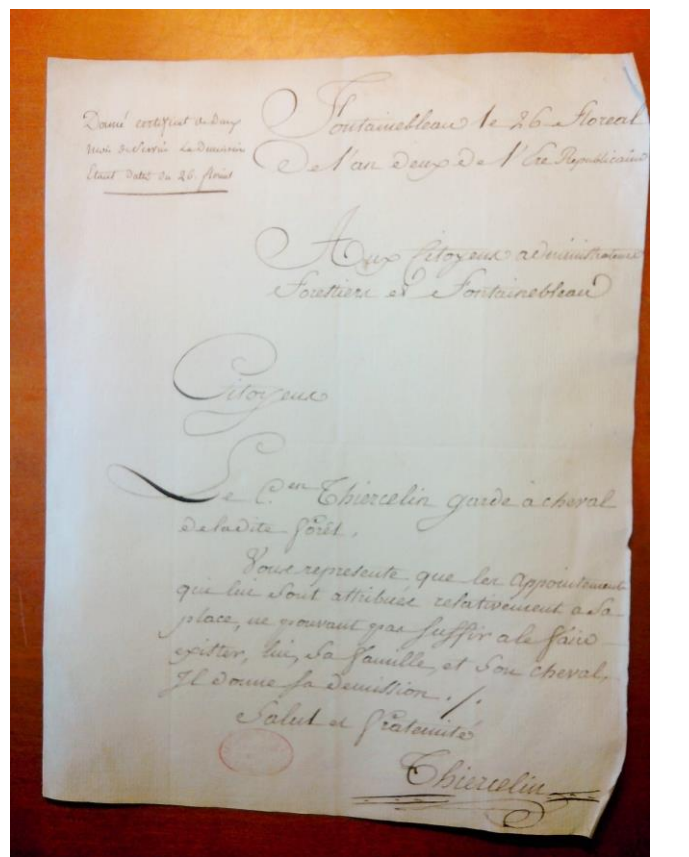 Donné certificat de deux
mois de Service Le Demission
Etant datée du 26. floréal
Fontainebleau le 26 Floreal
De l'an deux de l'Ere Republicaine
Aux Citoyens administrateurs
Forestiers de Fontainebleau
Citoyens
Le C.en Thiercelin garde à cheval
de la dite forêt.
Vous represente que les appointement
qui lui sont attribués relativement a sa
place, ne pouvant pas suffir a le faire
exister, lui, sa famille, et son cheval,
Il donne sa demission ./.
Salut et fraternité
Thiercelin